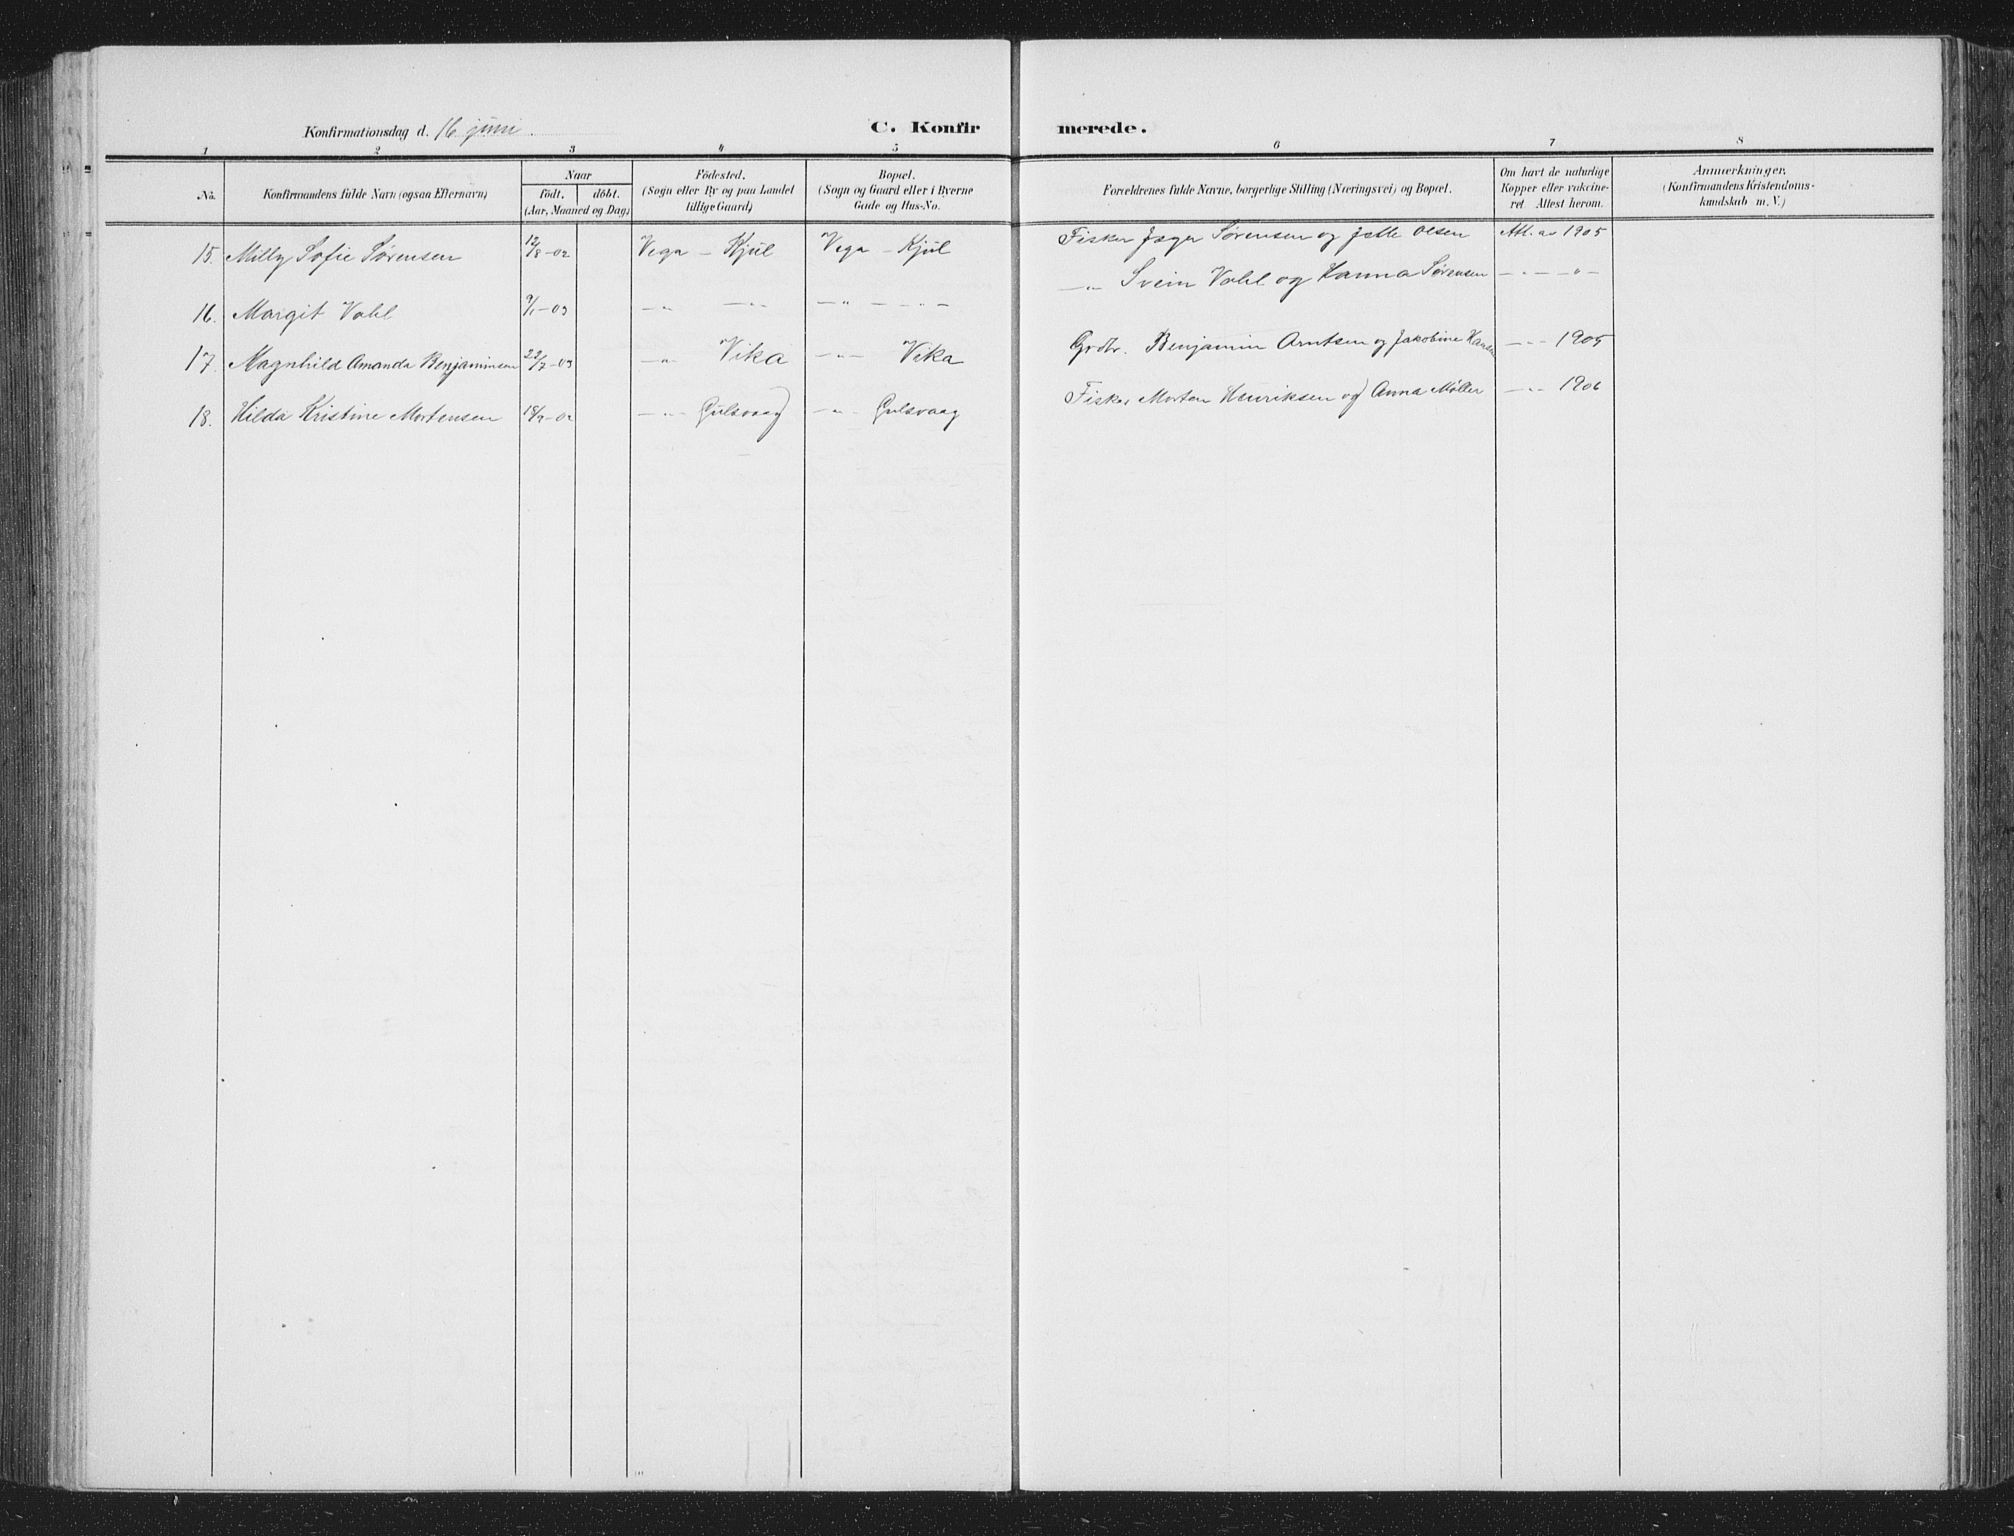 Konfirmationsdag d. 16 juni. C. Konfirmerede.
1 2 3 4 5 6 7 8
No. Konfirmandens fulde Navn (ogsaa Efternavn) Naar födt. döbt. (Aar, Maaned og Dag) Födested. (Sogn eller By og paa Landet tillige Gaard) Bopæl. (Sogn og Gaard eller i Byerne Gade og Hus-No. Forældrenes fulde Navne, borgerlige Stilling (Næringsvei) og Bopæl. Om havt de naturlige Kopper eller vakcineret Attest herom. Anmærkninger. (Konfirmandens Kristendomskundskab m. V.)
15. Milly Sofie Sørensen 12/8-02 Vega - Kjul Vega - Kjul Fisker Sørensen og Jette Olsen Att. av 1905
16. Margit Vahl 9/1-03 -"- -"- -"- -"- -"- Svein Vahl og Hanna Sørensen -"- -"-
17. Magnhild Amanda Benjaminsen 22/7-03 -"- Vika -"- Vika Grdbr. Benjamin Arntsen og Jakobine Hansen -"- 1905
18. Hilda Kristine Mortensen -02 -"- Gulsvaag -"- Gulsvaag Fisker Morten Henriksen og Anna Møller -"- 1906